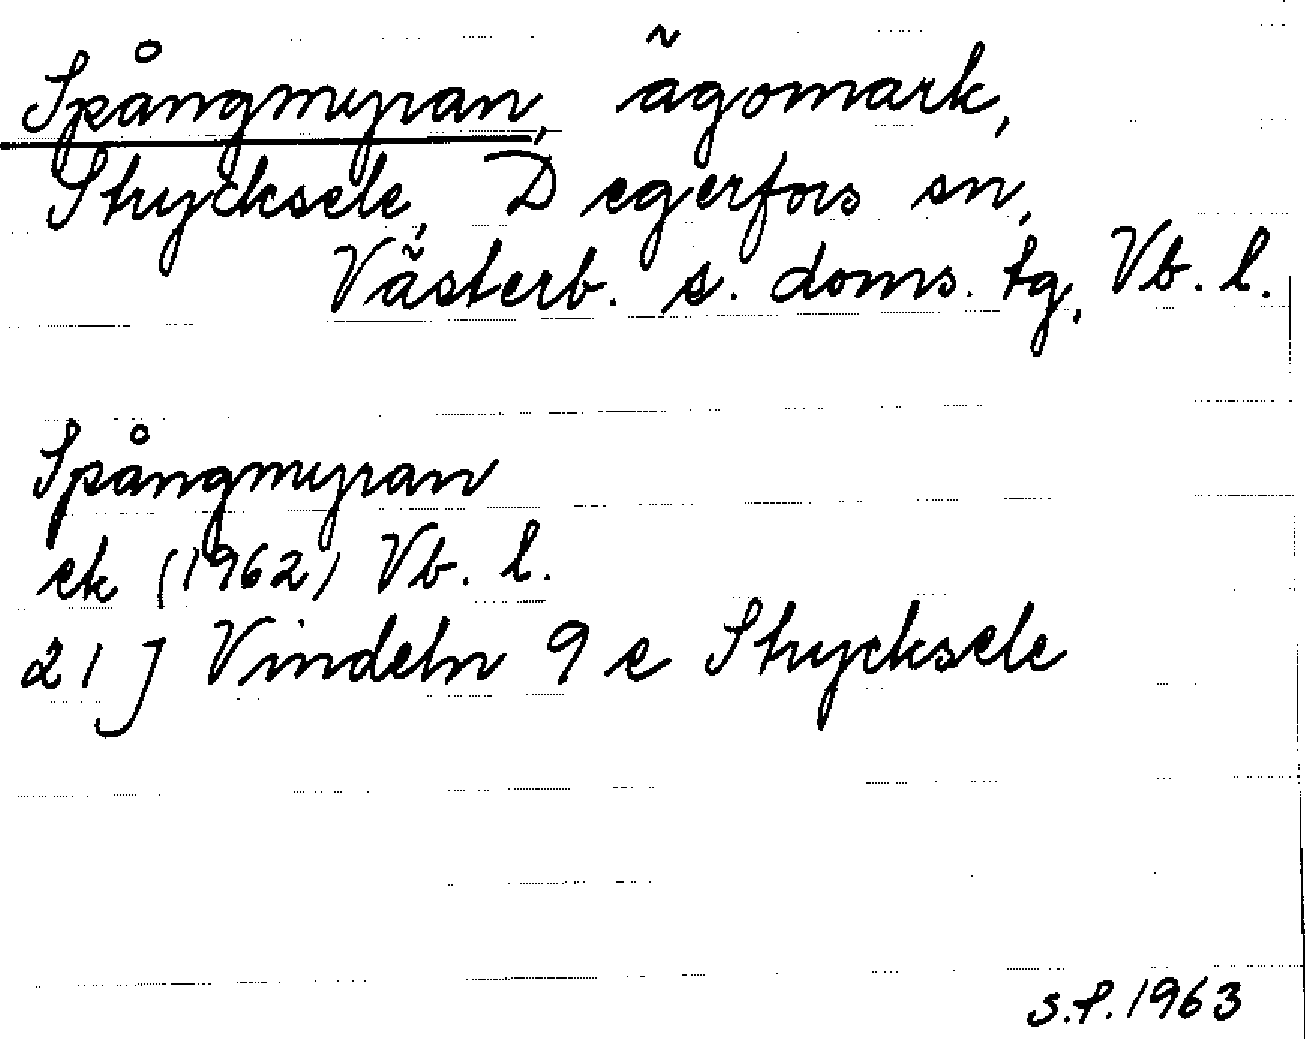 Spångmyran, ägomark,
Strycksele, Degerfors sn,
Västerb. s. doms. tg, Vb. l.
Spångmyran
ek (1962) Vb. l.
21 J Vindeln 9 e Strycksele
S.P. 1963